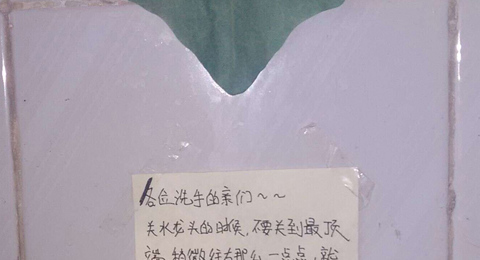 各位洗手的亲们~~
关水龙头的时候,不要关到最顶
端,稍微往右那么一点点,就